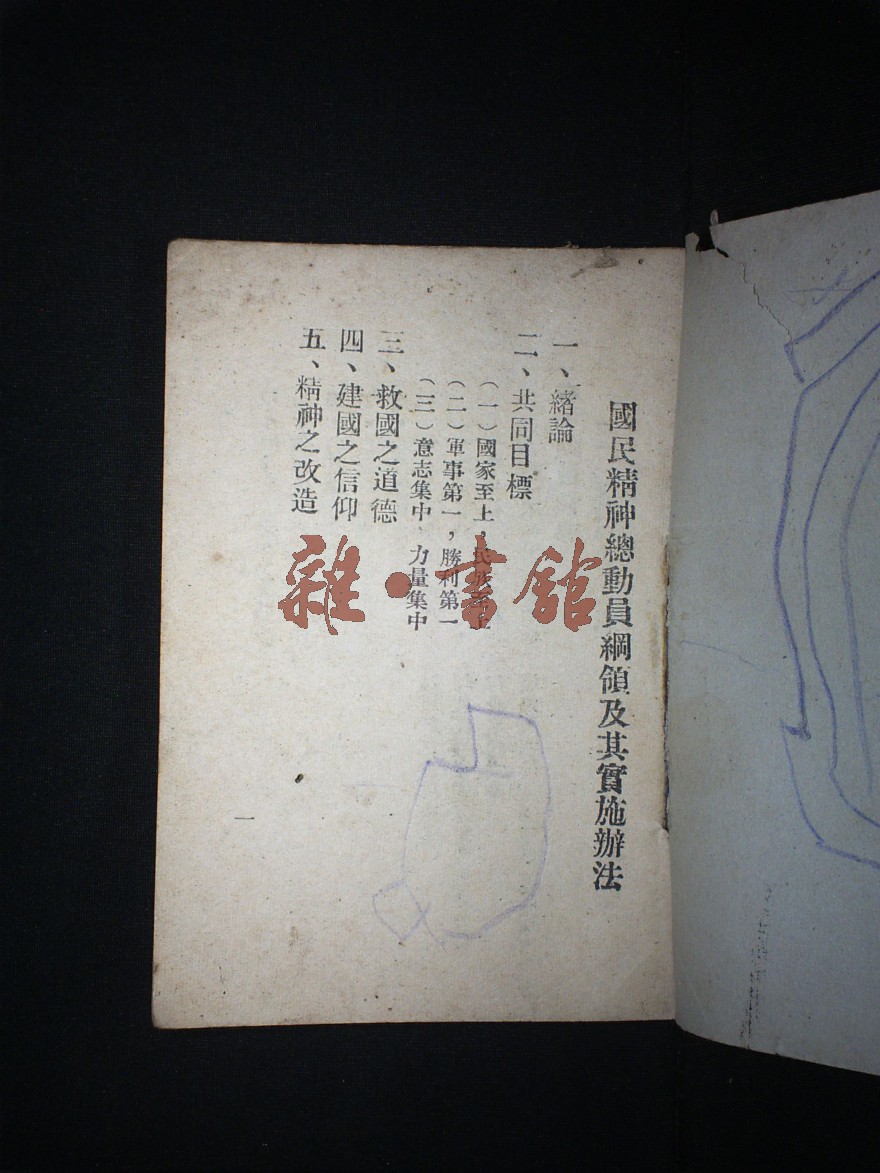 國民精神總動員綱領及其實施辦法
一、緒論
二、共同目標
（一）國家至上，民族至上
（二）軍事第一，勝利第一
（三）意志集中 力量集中
三、救國之道德
四、建國之信仰
五、精神之改造
一
雜·書館